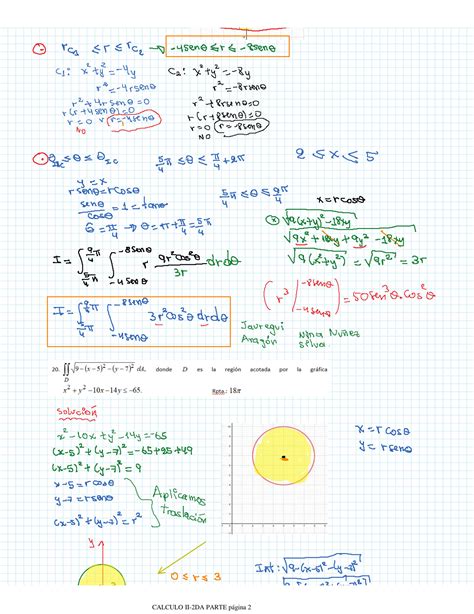 r_C1 ≤ r ≤ r_C2 → -4senθ ≤ r ≤ -8senθ
C1: x²+y²=-4y
r²=-4rsenθ
r²+4rsenθ=0
r(r+4senθ)=0
r=0 r=-4senθ
NO
C2: x²+y²=-8y
r²=-8rsenθ
r²+8rsenθ=0
r(r+8senθ)=0
r=0 r=-8senθ
NO
5/4π ≤ θ ≤ π/4+2π
2 ≤ x ≤ 5
y=x
rsenθ=rcosθ
senθ/cosθ=1=tanθ
θ=π/4 → θ=π+π/4=5π/4
5/4π ≤ θ ≤ 9π/4
x=rcosθ
√9(x+y)²-18xy
√9x²+18xy+9y²-18xy
√9(x²+y²)=√9r²=3r
I=∫5/4π 9/4π ∫-4senθ -8senθ r 9r²cos²θ/3r drdθ
I=∫5/4π 9/4π ∫-4senθ -8senθ 3r²cos²θ drdθ
(r³ |-4senθ -8senθ)
Jauregui
Aragón
Nina Nuñez
Silva
20. ∬D √9-(x-5)²-(y-7)² dA, donde D es la región acotada por la gráfica
x²+y²-10x-14y ≤ -65. Rpta.: 18π
solución
x²-10x+y²-14y=-65
(x-5)²+(y-7)²=-65+25+49
(x-5)²+(y-7)²=9
x-5=rcosθ
y-7=rsenθ
(x-5)²+(y-7)²=r²
Aplicamos
traslación
x=rcosθ
y=rsenθ
y
0 ≤ r ≤ 3
Int: √9-(x-5)²-(y-7)²
CALCULO II-2DA PARTE página 2